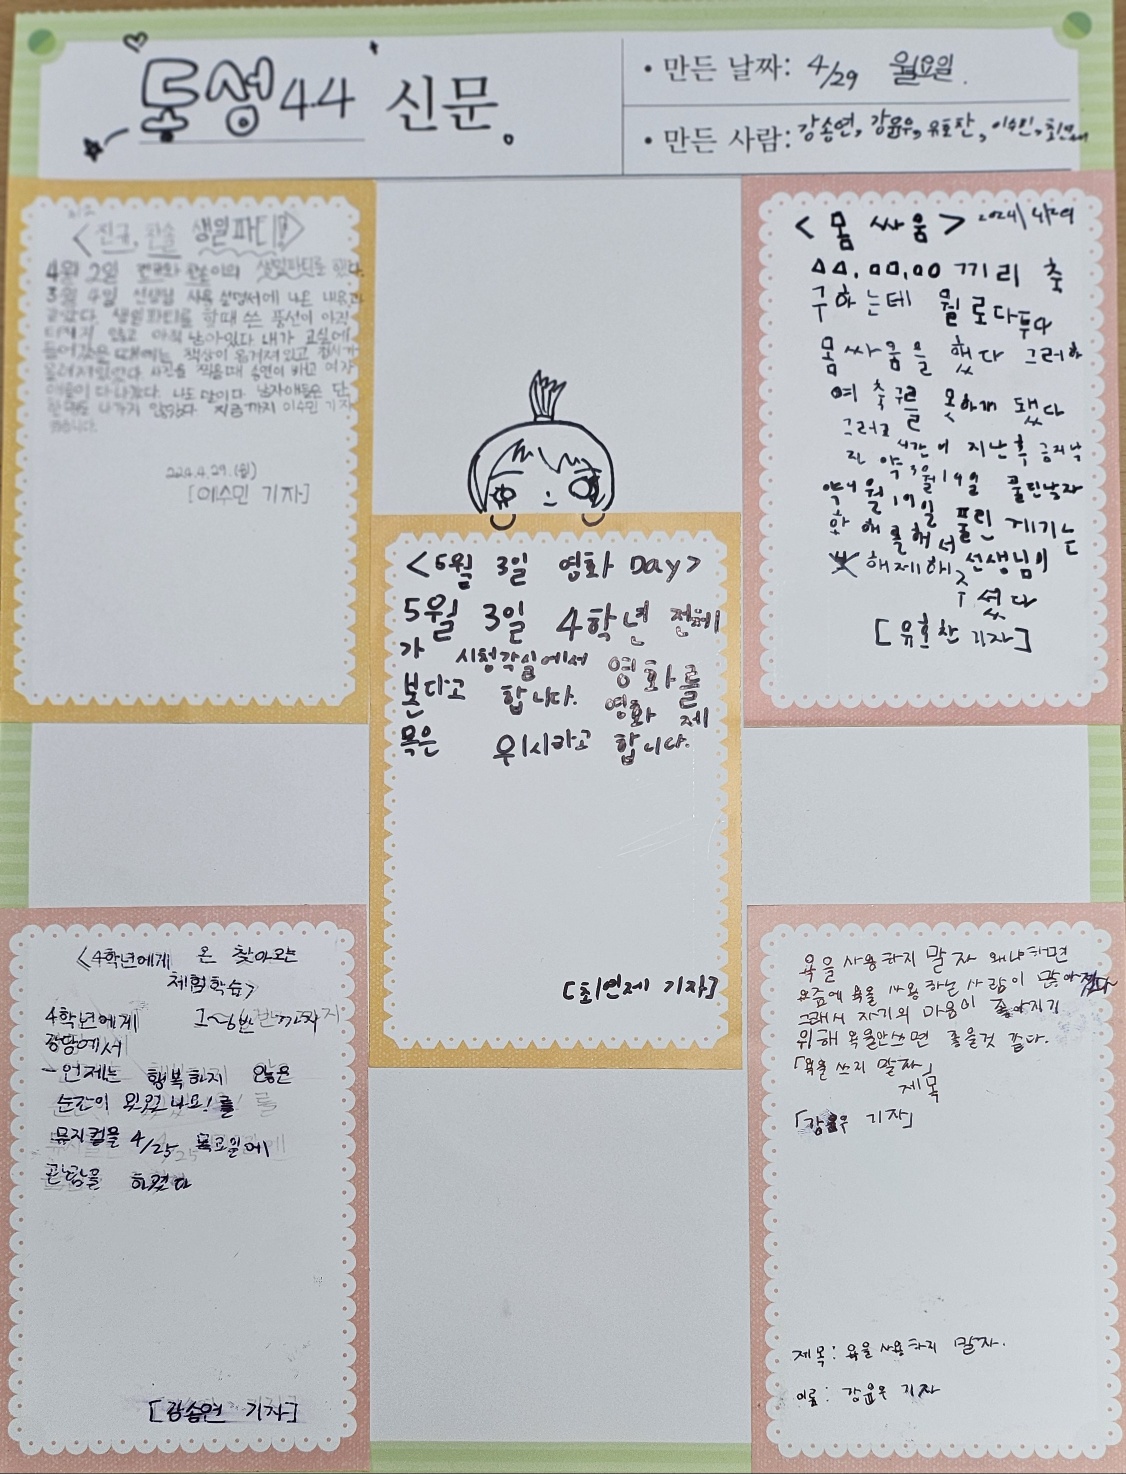 동성44 신문
• 만든 날짜: 4/29 월요일.
• 만든 사람: 강송연, 강윤우, 유호찬, 이수민, 최연제
생일파티>
4월 2일 생일파티를 했다.
3월 4일 선생님 사용 설명서에 나온 내용과
같았다. 생일파티를 할때 쓴 풍선이 아직
터지지 않고 아직 남아있다 내가 교실에
들어갔을 때에는 책상이 옮겨져있고 접시가
올려져있었다 사진을 찍을때 송연이 하고 여자
애들이 다 나갔다. 나도 말이다 남자애들은 단
한명도 나가지 않았다 지금까지 이수민 기자
였습니다.
2024.4.29.(월)
[이수민 기자]
<몸 싸움> 2024/4/29
△△,□□,○○ 끼리 축
구하는데 뭘로다투다
몸싸움을 했다 그러하
여 축구를 못하게 됐다
그러고 시간이 지난후 금지낙
진 약3월19일 풀린날자
약4월19일 풀린 계기는
화해를해서 선생님이
해제해
셨다
[유호찬 기자]
<5월 3일 영화 Day>
5월 3일 4학년 전체
가 시청각실에서 영화를
본다고 합니다. 영화 제
목은 위시라고 합니다.
[최연제 기자]
<4학년에게 온 찾아오는
체험학습>
4학년에게 1~6반 까지
강당에서
-언제는 행복하지 않은
순간이 있었나요! 를
뮤지컬을 4/25 목요일에
관람을 하였다
[강송연 기자]
욕을 사용하지 말자 왜냐하면
요즘에 욕을 사용하는 사람이 많아졌다
그래서 자기의 마음이 좋아지기
위해 욕을안쓰면 좋을것 같다.
「욕을 쓰지 말자」
제목
「강윤우 기자」
제목: 욕을 사용하지 말자.
이름: 강윤우 기자